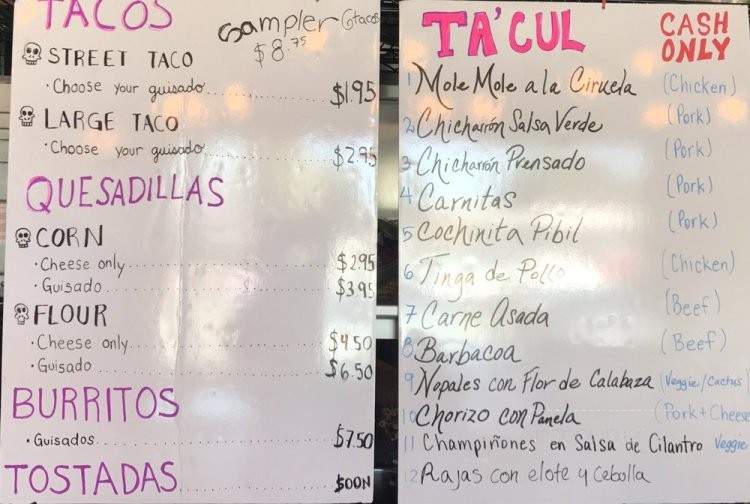 TACOS
Sampler 6tacos
$8.75
STREET TACO
· Choose your guisado $1.95
LARGE TACO
· Choose your guisado $2.95
QUESADILLAS
CORN
· Cheese only $2.95
· Guisado $3.95
FLOUR
· Cheese only $4.50
· Guisado $6.50
BURRITOS
· Guisados $7.50
TOSTADAS $OON
TA'CUL
CASH
ONLY
1 Mole Mole a la Ciruela (Chicken)
2 Chicharrón Salsa Verde (Pork)
3 Chicharrón Prensado (Pork)
4 Carnitas (Pork)
5 Cochinita Pibil (Pork)
6 Tinga de Pollo (Chicken)
7 Carne Asada (Beef)
8 Barbacoa (Beef)
9 Nopales con Flor de Calabaza (Veggie/Cactus)
10 Chorizo con Panela (Pork+Cheese
11 Champiñones en Salsa de Cilantro Veggie
12 Rajas con elote y Cebolla